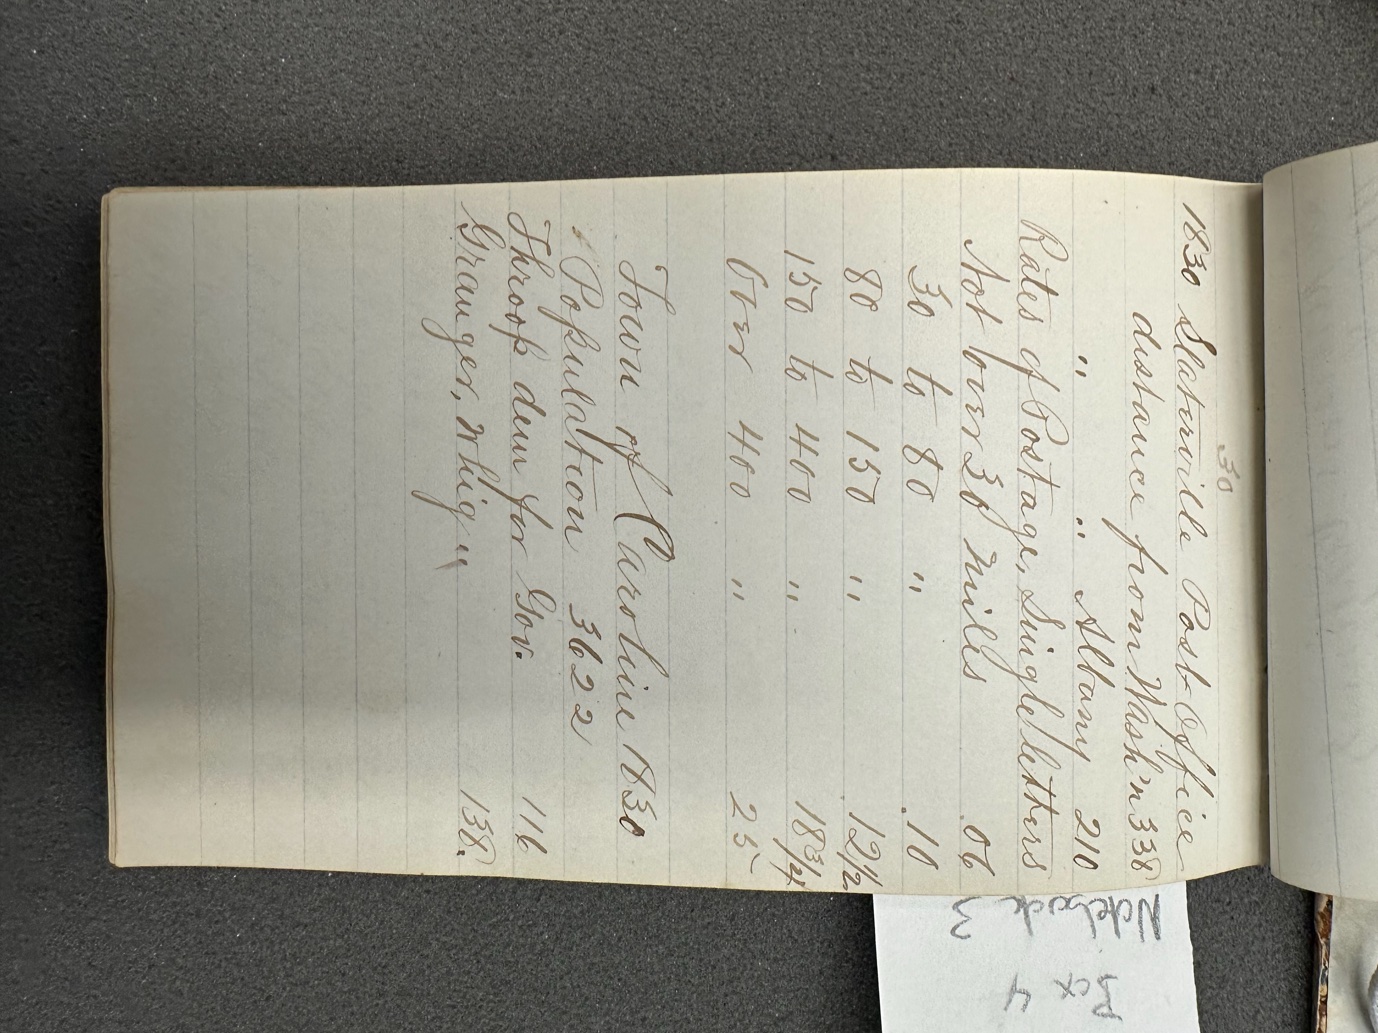 30
1830 Slaterville Post Office
distance from Wash'n 338
" " Albany 210
Rates of Postage, Single letters
Not over 30 Miles .06
30 to 80 " .10
80 to 150 " 12½
150 to 400 " 18¾
Over 400 " 25
Town of Caroline 1830
Population 3622
Throop dem for Gov. 116
Granger, Whig " 138.
Box 4
Notebook 3